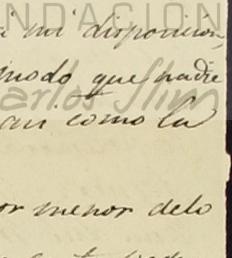 NDACIÓN
mi disposición,
modo que nadie
Carlos Slim
asi como la
or menor delo